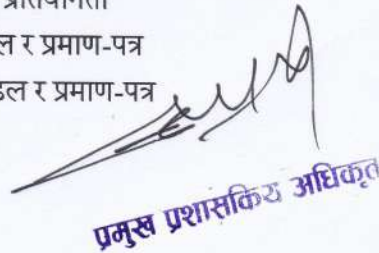 प्रतियोगिता
ल र प्रमाण-पत्र
डल र प्रमाण-पत्र
प्रमुख प्रशासकिय अधिकृत